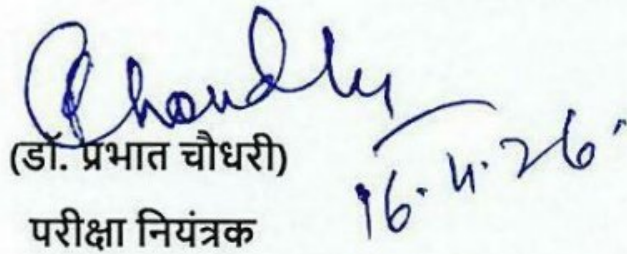 Chaudhy
(डॉ. प्रभात चौधरी)
16.4.26
परीक्षा नियंत्रक